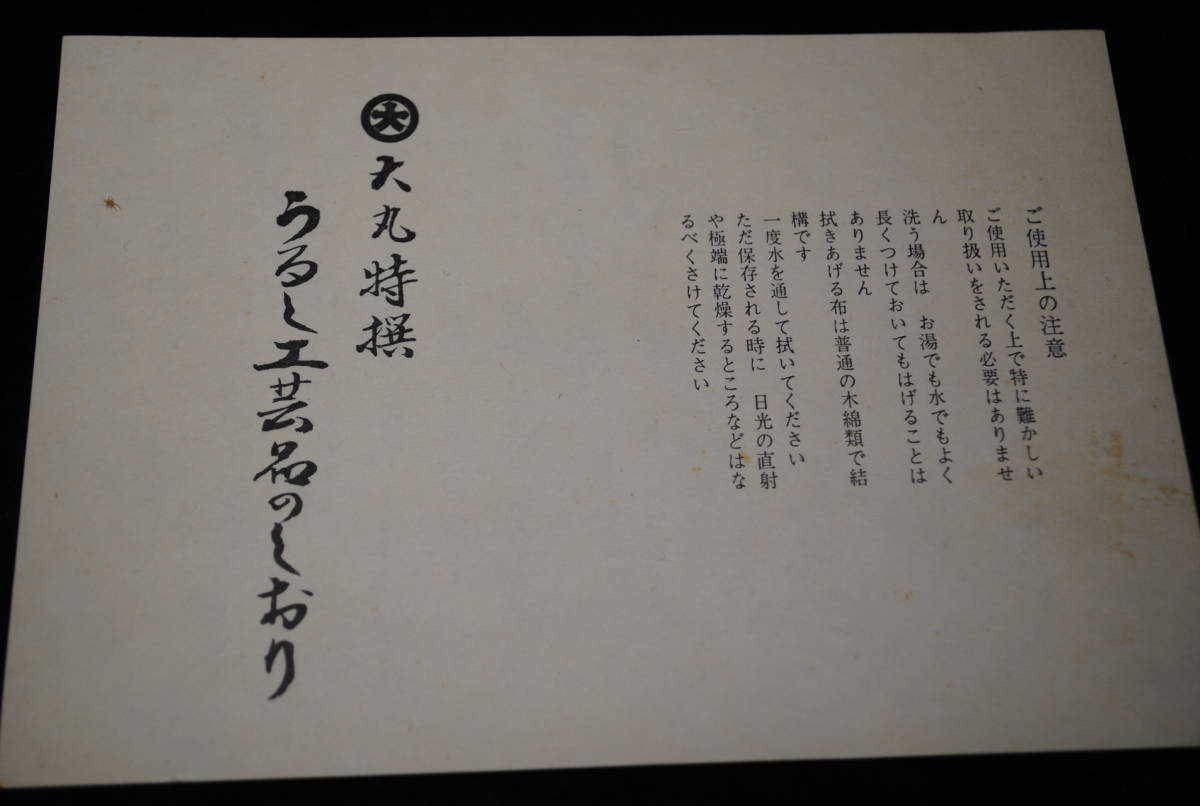 ご使用上の注意
ご使用いただく上で特に難かしい
取り扱いをされる必要はありませ
ん
洗う場合は　お湯でも水でもよく
長くつけておいてもはげることは
ありません
拭きあげる布は普通の木綿類で結
構です
一度水を通して拭いてください
ただ保存される時に　日光の直射
や極端に乾燥するところなどはな
るべくさけてください
大
大丸特撰
うるし工芸品のしおり